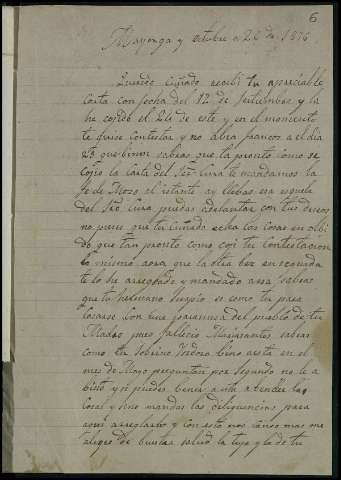 6
Mayorga y octubre a 26 de 1876
Querido Cuñado recibi tu apreciable
Carta con fecha del 12 de Setiembre y la
he cojido el 24 de este y en el momento
te quise contestar y no abia francos a el dia
25 que binon sabras que la pronto como se
Cojio la carta del Sor Cura le mandamos la
fe de Mozo el istante ay llebas esa esquela
del Sor Cura puedas adelantar con tus deseos
no pienses que tu Cuñado echa las cosas en olbi
do que tan pronto como coji tu contestacion
lo mismo aora que la otra bez en seguida
te lo he arreglado y mandado aora sabras
que tu hermano ... es como tu para
Casarse Con una joven del pueblo de tu
Madre pues fallecio ... sabras
como tu sobrino Isidoro bino a esta en el
mes de Mayo preguntar por Segundo no le a
bisto y si puedes benir a esta atender las
Cosas y sino mandas las diligencias para
aqui arreglarlo y con esto nos somos mas me
alegro de buestra salud la tuya y la de tu